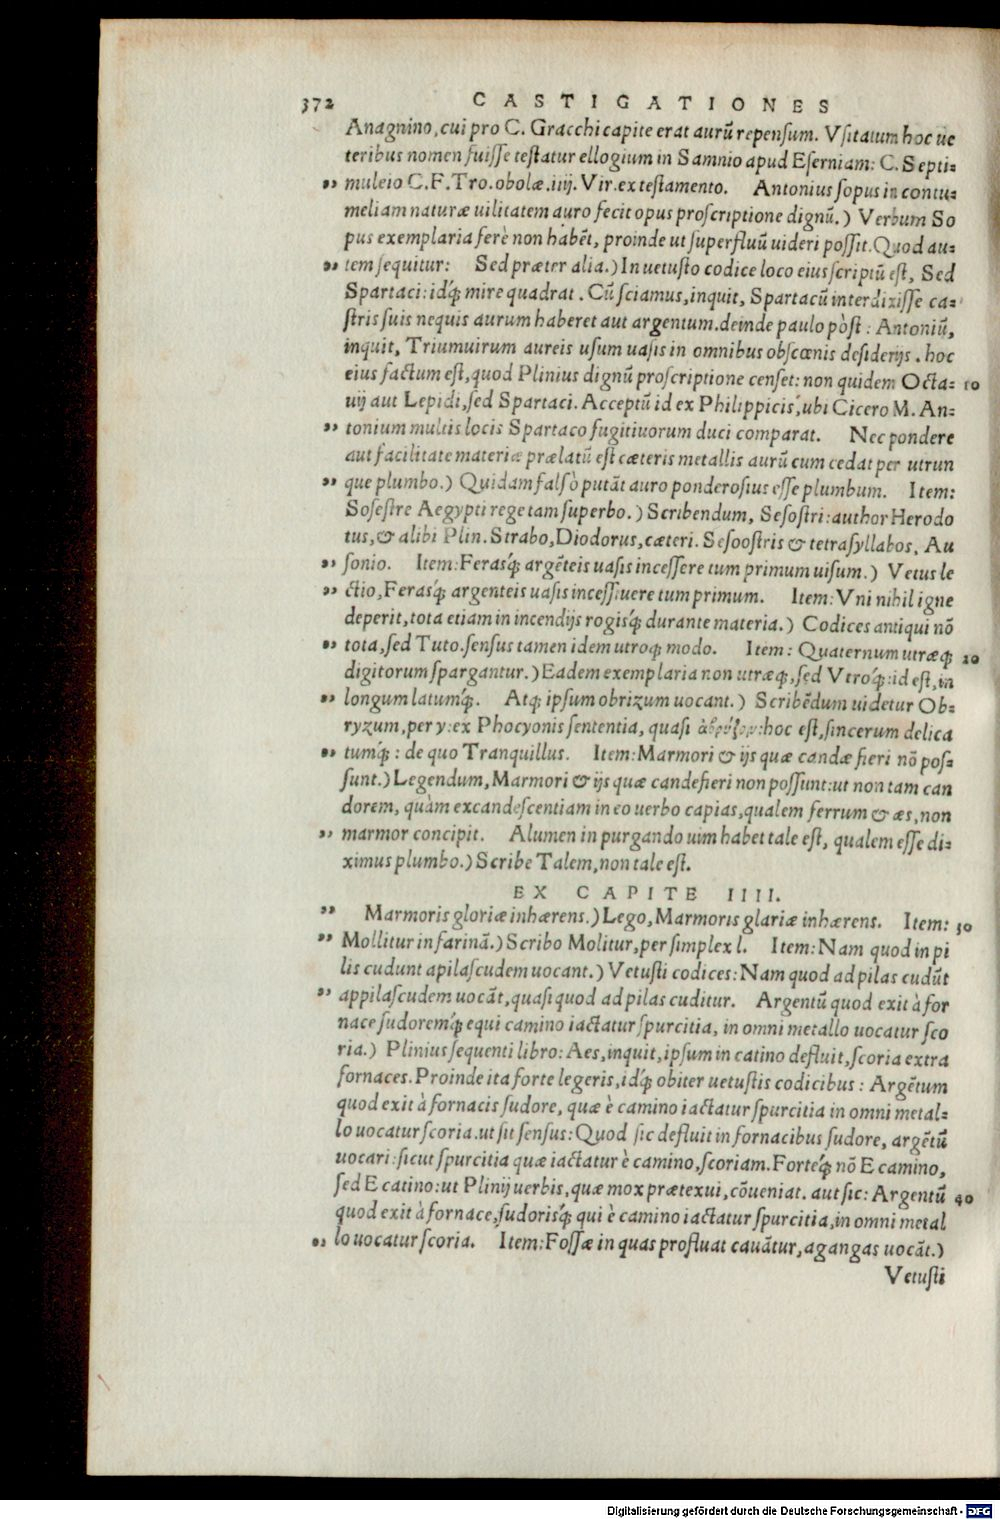 372 CASTIGATIONES
Anagnino, cui pro C. Gracchi capite erat aurũ repensum. Vsitatum hoc ue
teribus nomen fuisse testatur ellogium in Samnio apud Eserniam: C. Septi=
„ muleio C. F. Tro. obolæ. iiij. Vir. ex testamento. Antonius sopus in contu=
meliam naturæ uilitatem auro fecit opus proscriptione dignũ.) Verbum So
pus exemplaria ferè non habẽt, proinde ut superfluũ uideri possit. Quod au=
„ tem sequitur: Sed præter alia.) In uetusto codice loco eius scriptũ est, Sed
Spartaci: idq́; mire quadrat. Cũ sciamus, inquit, Spartacũ interdixisse ca=
stris suis nequis aurum haberet aut argentum. deinde paulo pòst: Antoniũ,
inquit, Triumuirum aureis usum uasis in omnibus obscœnis desiderijs. hoc
eius factum est, quod Plinius dignũ proscriptione censet: non quidem Octa= 10
uij aut Lepidi, sed Spartaci. Acceptũ id ex Philippicis, ubi Cicero M. An=
„ tonium multis locis Spartaco fugitiuorum duci comparat. Nec pondere
aut facilitate materiæ prælatũ est cæteris metallis aurũ cum cedat per utrun
„ que plumbo.) Quidam falsò putãt auro ponderosius esse plumbum. Item:
Sosestre Aegypti rege tam superbo.) Scribendum, Sesostri: author Herodo
tus, & alibi Plin. Strabo, Diodorus, cæteri. Sesoostris & tetrasyllabos, Au
„ sonio. Item: Ferasq́; argẽteis uasis incessere tum primum uisum.) Vetus le
„ ctio, Ferasq́; argenteis uasis incessiuere tum primum. Item: Vni nihil igne
deperit, tota etiam in incendijs rogisq́; durante materia.) Codices antiqui nõ
„ tota, sed Tuto. sensus tamen idem utroq; modo. Item: Quaternum utræq; 20
digitorum spargantur.) Eadem exemplaria non utræq;, sed Vtroq́;: id est, in
„ longum latumq́;. Atq; ipsum obrizum uocant.) Scribẽdum uidetur Ob=
ryzum, per y: ex Phocyonis sententia, quasi hoc est, sincerum delica
„ tumq́;: de quo Tranquillus. Item: Marmori & ijs quæ candæ fieri nõ pos=
sunt.) Legendum, Marmori & ijs quæ candefieri non possunt: ut non tam can
dorem, quàm excandescentiam in eo uerbo capias, qualem ferrum & æs, non
„ marmor concipit. Alumen in purgando uim habet tale est, qualem esse di=
ximus plumbo.) Scribe Talem, non tale est.
EX CAPITE IIII.
„ Marmoris gloriæ inhærens.) Lego, Marmoris glariæ inhærens. Item: 30
„ Mollitur in farinã.) Scribo Molitur, per simplex l. Item: Nam quod in pi
lis cudunt apilascudem uocant.) Vetusti codices: Nam quod ad pilas cudũt
„ appilascudem uocãt, quasi quod ad pilas cuditur. Argentũ quod exit à for
nace sudoremq́; equi camino iactatur spurcitia, in omni metallo uocatur sco
ria.) Plinius sequenti libro: Aes, inquit, ipsum in catino defluit, scoria extra
fornaces. Proinde ita forte legeris, idq́; obiter uetustis codicibus: Argẽtum
quod exit à fornacis sudore, quæ è camino iactatur spurcitia in omni metal=
lo uocatur scoria. ut sit sensus: Quod sic defluit in fornacibus sudore, argẽtũ
uocari: sicut spurcitia quæ iactatur è camino, scoriam. Forteq́; nõ E camino,
sed E catino: ut Plinij uerbis, quæ mox prætexui, cõueniat. aut sic: Argentũ 40
quod exit à fornace, sudorisq́; qui è camino iactatur spurcitia, in omni metal
„ lo uocatur scoria. Item: Fossæ in quas profluat cauãtur, agangas uocãt.)
Vetusti
Digitalisierung gefördert durch die Deutsche Forschungsgemeinschaft - DFG